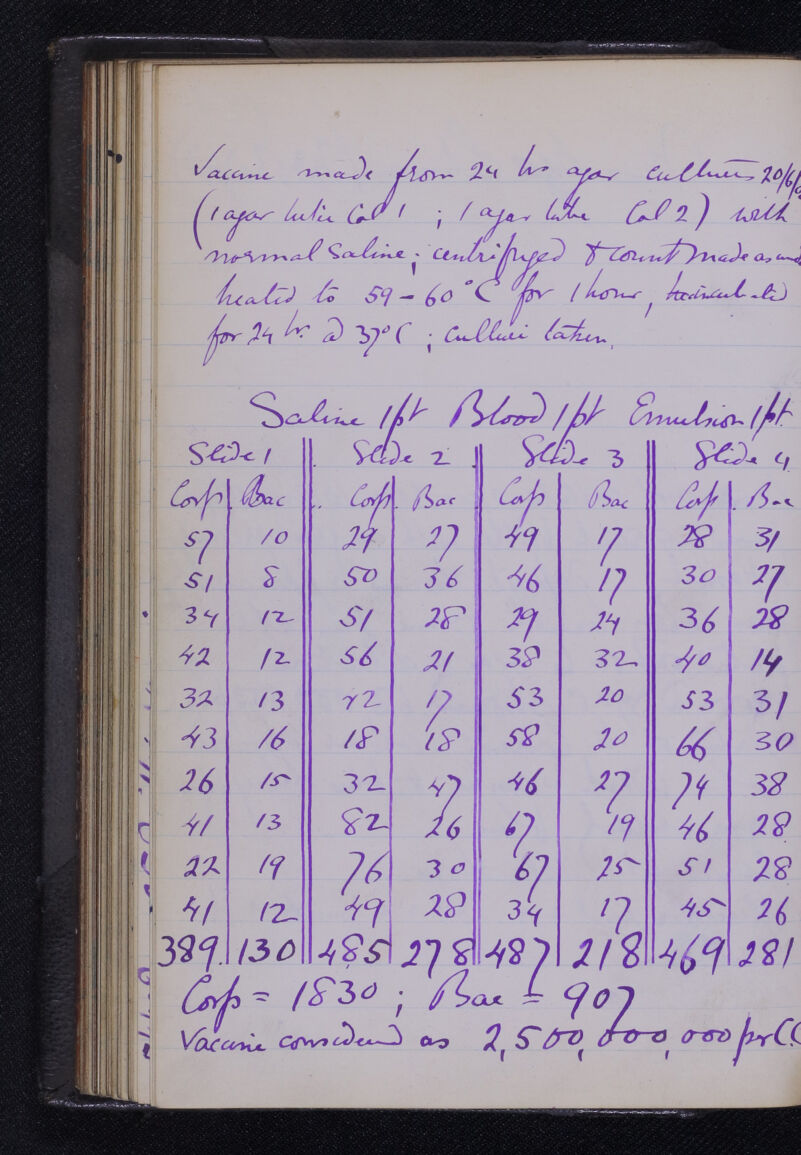 Vaccine made from 24 hrs agar cultures 20/6/
(1 agar tube Col 1 ; 1 agar tube Col 2) with
normal Saline ; centrifuged & count made as
heated to 59 – 60°C for 1 hour,
for 24 hrs @ 37°C ; culture taken.
Saline 1pt Blood 1pt Emulsion 1pt.
Slide 1 Slide 2 Slide 3 Slide 4
Corps Bac Corps Bac Corps Bac Corps Bac
57 10 29 27 49 17 28 31
51 8 50 36 46 17 30 27
34 12 51 28 29 24 36 28
42 12 56 21 38 32 40 14
32 13 42 17 53 20 53 31
43 16 18 18 58 20 66 30
26 15 32 47 46 27 74 38
41 13 82 26 67 19 46 28
22 19 76 30 67 25 51 28
41 12 49 28 34 17 45 26
389 130 485 278 487 218 469 281
Corps = 1830 ; Bac = 907
Vaccine considered as 2,500,000,000 per C.C